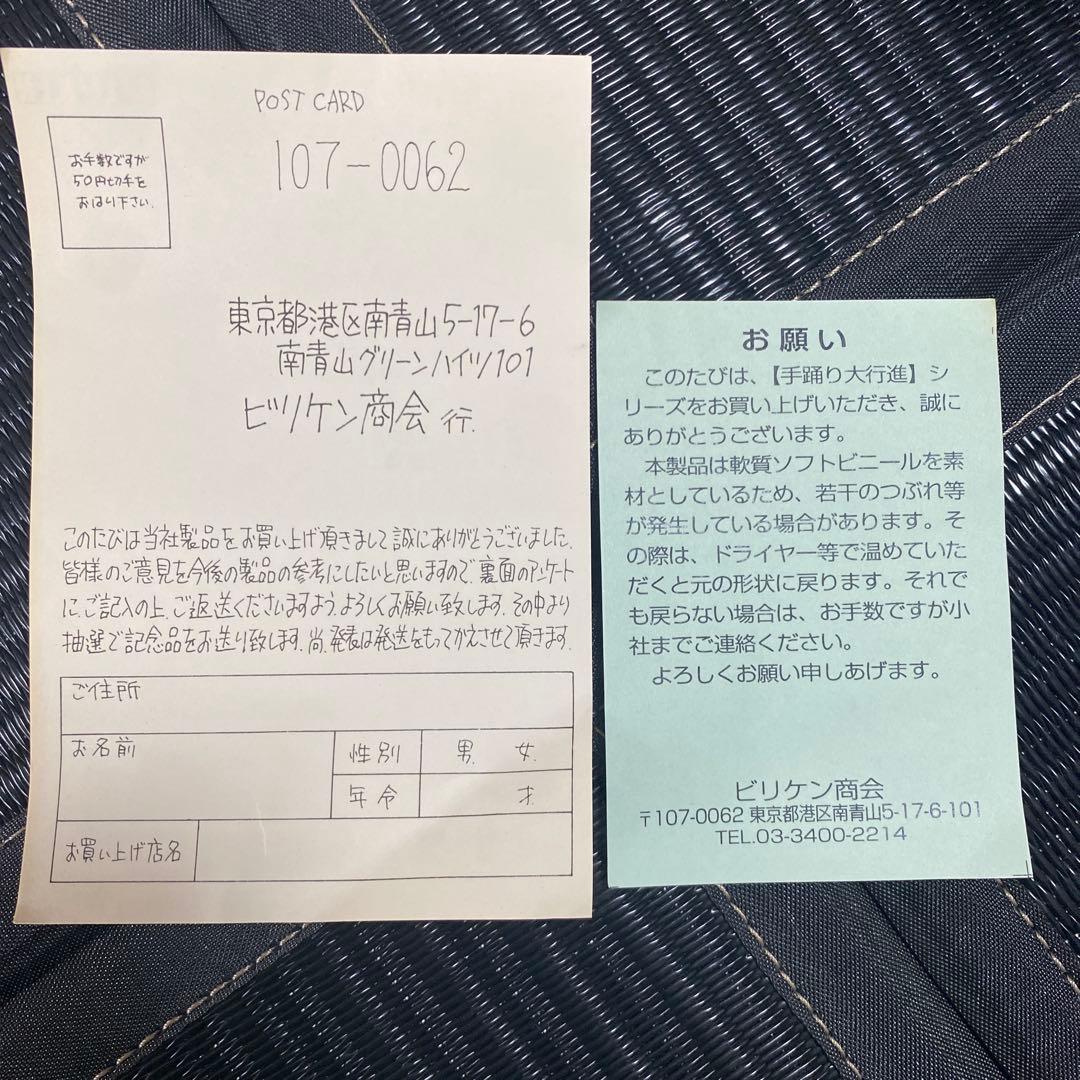 POST CARD
お手数ですが
50円切手を
おはり下さい.
107-0062
東京都港区南青山5-17-6
南青山グリーンハイツ101
ビリケン商会 行.
このたびは当社製品をお買い上げ頂きまして誠にありがとうございました.
皆様のご意見を今後の製品の参考にしたいと思いますので、裏面のアンケート
に、ご記入の上、ご返送くださいますよう、よろしくお願い致します. その中より
抽選で記念品をお送り致します. 尚、発表は発送をもってかえさせて頂きます.
ご住所
お名前
性別
男. 女.
年令
才.
お買い上げ店名
お願い
このたびは、【手踊り大行進】シ
リーズをお買い上げいただき、誠に
ありがとうございます。
本製品は軟質ソフトビニールを素
材としているため、若干のつぶれ等
が発生している場合があります。そ
の際は、ドライヤー等で温めていた
だくと元の形状に戻ります。それで
も戻らない場合は、お手数ですが小
社までご連絡ください。
よろしくお願い申しあげます。
ビリケン商会
〒107-0062 東京都港区南青山5-17-6-101
TEL.03-3400-2214